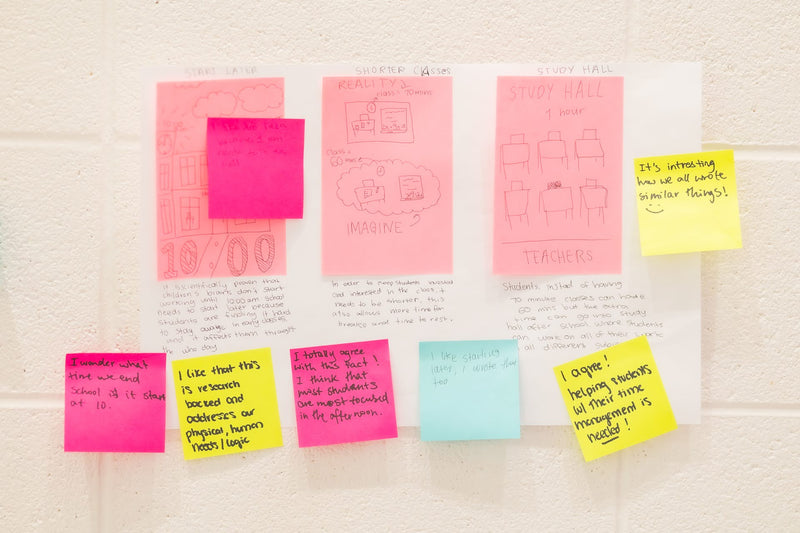 START LATER
SHORTER Classes
STUDY HALL
10:00
REALITY
class = 70 mins
class =
60 mins
IMAGINE
STUDY HALL
1 hour
TEACHERS
It's intresting
how we all wrote
similar things!
it is scientifically proven that
children's brains don't start
working until 10:00 am school
needs to start later because
students are finding it hard
to stay awake in early classes
and it affects them through
the who day
In order to keep students
and interested in the class, it
needs to be shorter, this
also allows more time for
breaks and time to rest.
Students, instead of having
70 minute classes can have
60 mins but the extra
time can go into study
hall after school where students
can work on all of their work
all different
I wonder what
time we end
School if it starts
at 10.
I like that this
is research
backed and
addresses our
physical, human
needs/logic
I totally agree
with this fact!
I think that
most students
are most focused
in the afternoon.
I like starting
later, I wrote that
too
I agree!
helping students
w/ their time
management is
needed!